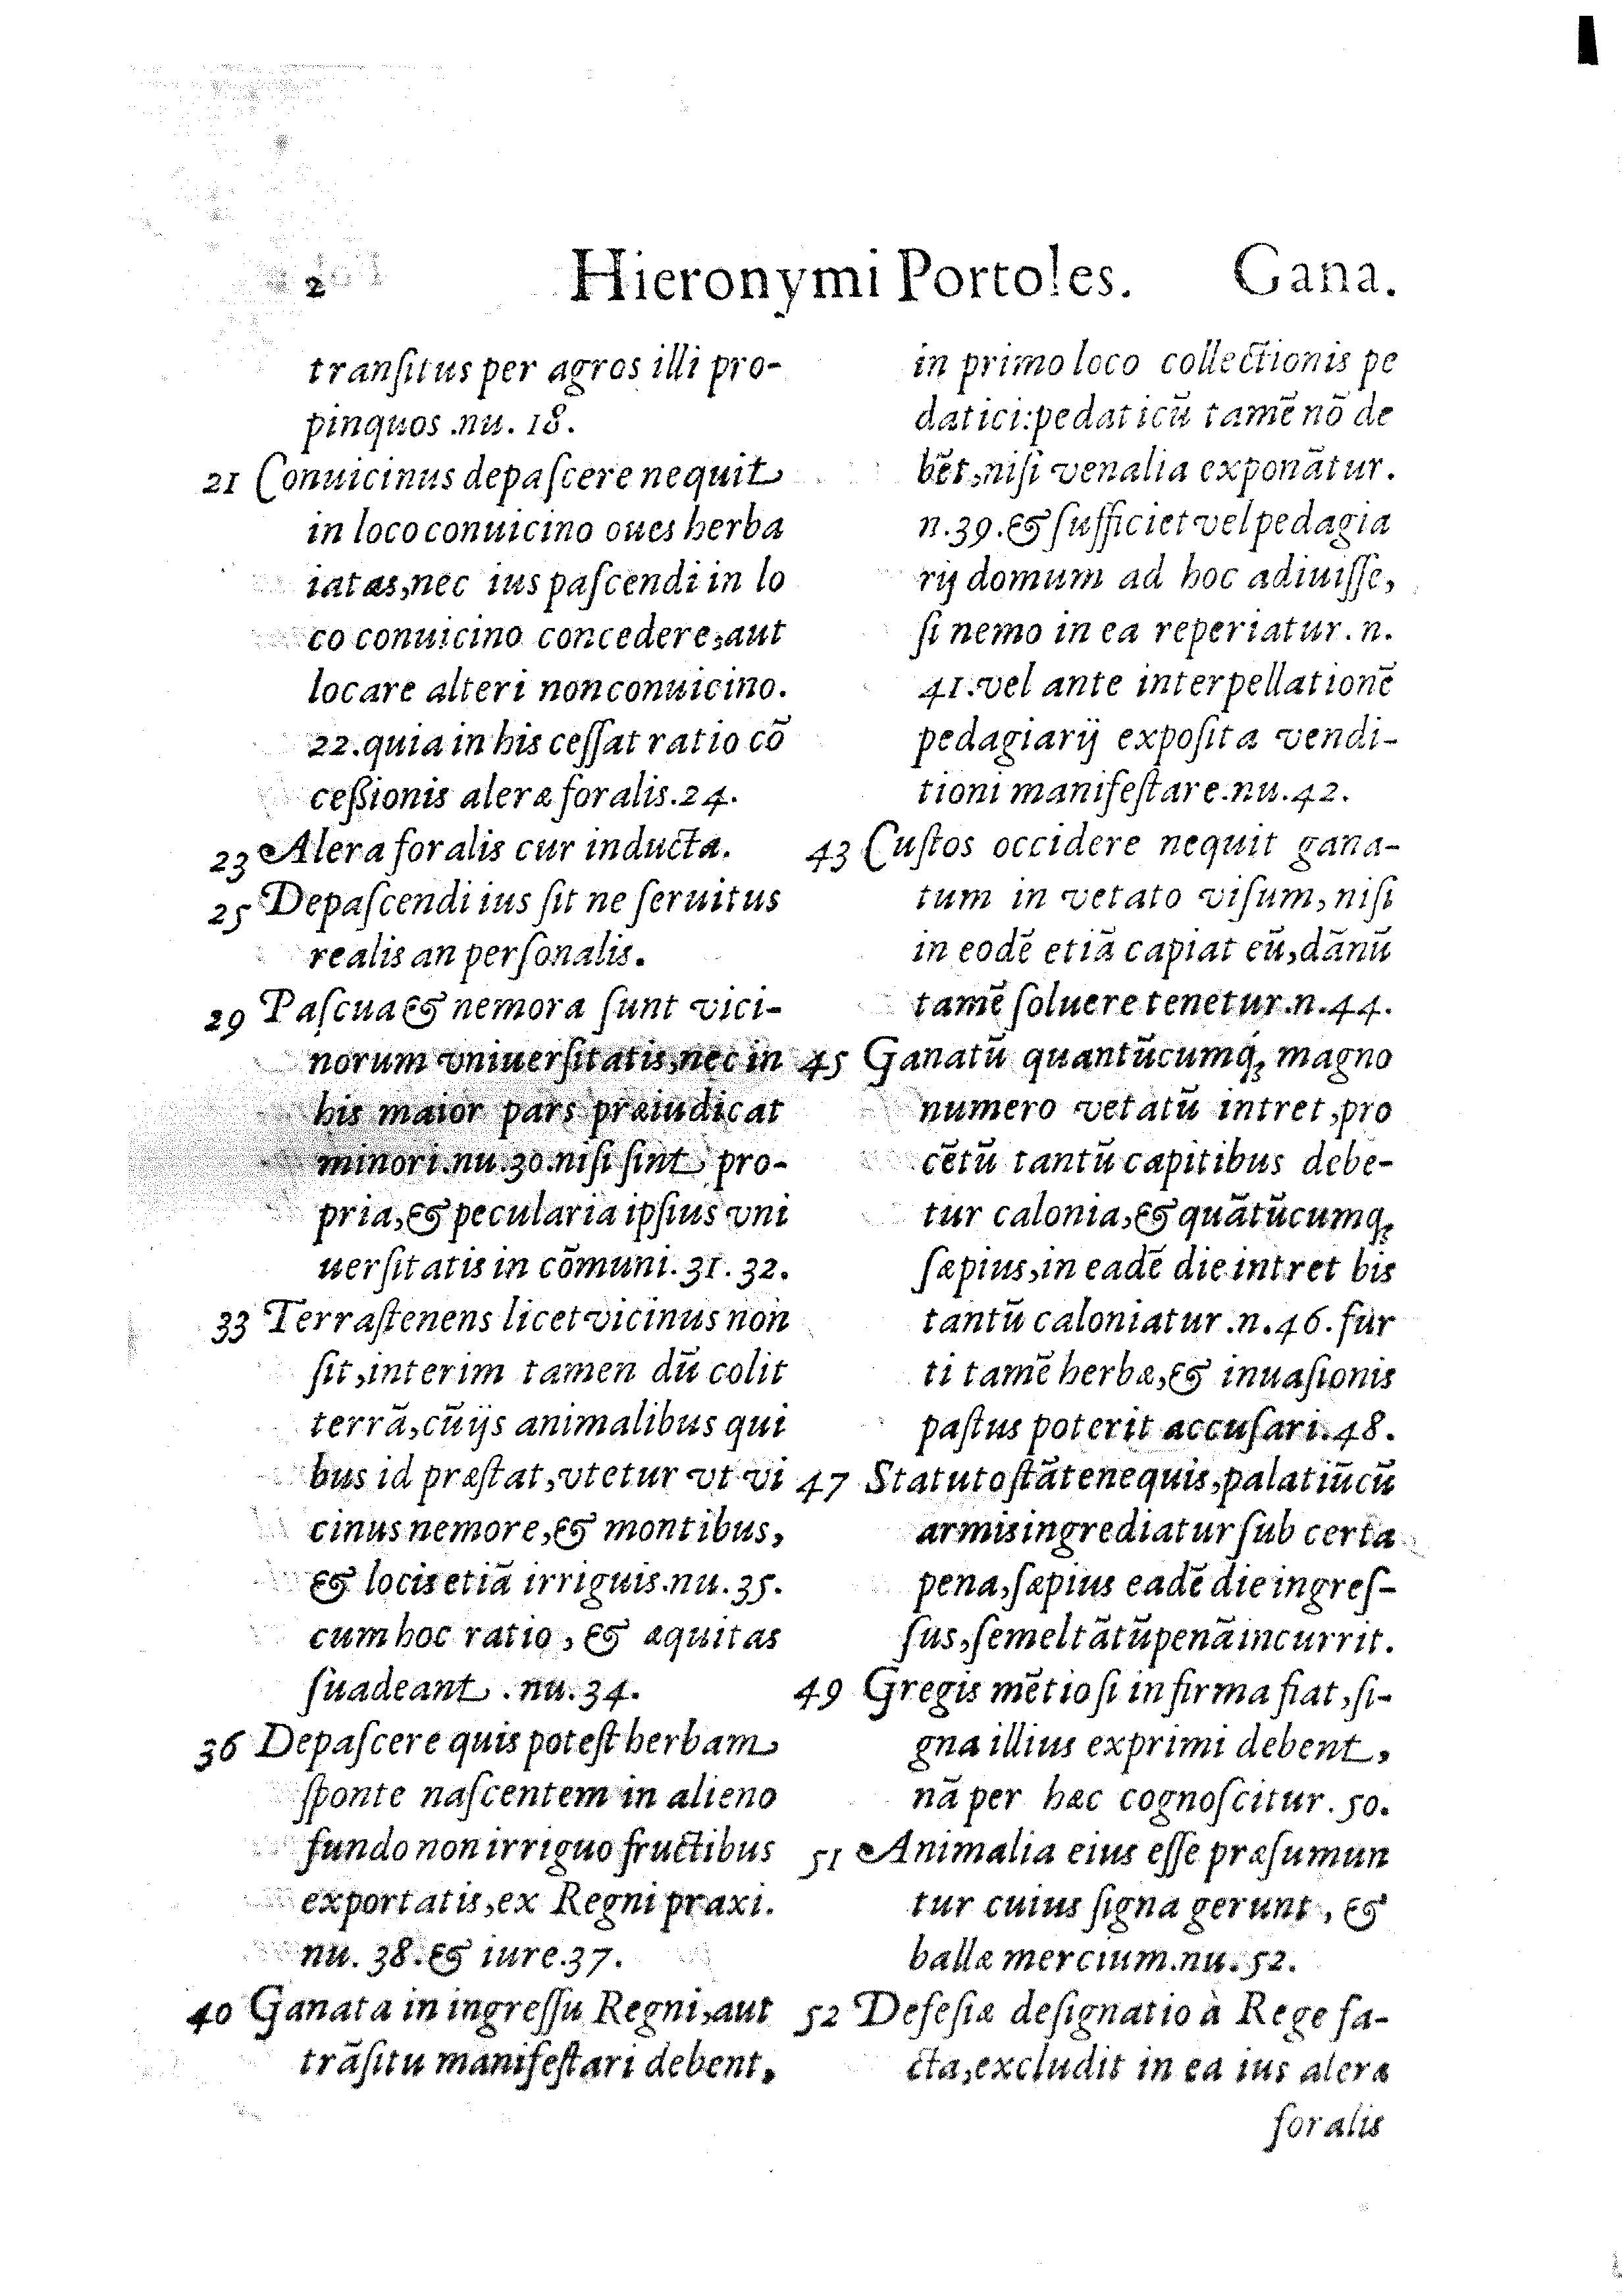 2 Hieronymi Portoles. Gana.
tranſitus per agros illi pro-
pinquos .nu. 18.
21 Conuicinus depaſcere nequit
in loco conuicino oues herba
iatas, nec ius paſcendi in lo
co conuicino concedere, aut
locare alteri non conuicino.
22. quia in his ceſſat ratio cō
ceßionis aleræ foralis. 24.
23 Alera foralis cur inducta.
25 Depaſcendi ius ſit ne ſeruitus
realis an perſonalis.
29 Paſcua & nemora ſunt vici-
norum vniuerſitatis, nec in
his maior pars præiudicat
minori. nu. 30. niſi ſint pro-
pria, & pecularia ipſius vni
uerſitatis in cōmuni. 31. 32.
33 Terraſtenens licet vicinus non
ſit, interim tamen dū colit
terrā, cū ijs animalibus qui
bus id præſtat, vtetur vt vi
cinus nemore, & montibus,
& locis etiā irriguis. nu. 35.
cum hoc ratio, & æquitas
ſuadeant . nu. 34.
36 Depaſcere quis poteſt herbam
ſponte naſcentem in alieno
fundo non irriguo fructibus
exportatis, ex Regni praxi.
nu. 38. & iure. 37.
40 Ganata in ingreſſu Regni, aut
trāſitu manifeſtari debent,
in primo loco collectionis pe
datici: pedaticū tamē nō de
bēt, niſi venalia exponātur.
n. 39. & ſufficiet vel pedagia
rij domum ad hoc adiuiſſe,
ſi nemo in ea reperiatur. n.
41. vel ante interpellationē
pedagiarij expoſita vendi-
tioni manifeſtare. nu. 42.
43 Cuſtos occidere nequit gana-
tum in vetato viſum, niſi
in eodē etiā capiat eū, dānū
tamē ſoluere tenetur. n. 44.
45 Ganatū quantūcumq; magno
numero vetatū intret, pro
cētū tantū capitibus debe-
tur calonia, & quātūcumq;
ſæpius, in eadē die intret bis
tantū caloniatur. n. 46. fur
ti tamē herbæ, & inuaſionis
paſtus poterit accuſari. 48.
47 Statuto ſtāte nequis, palatiū cū
armis ingrediatur ſub certa
pena, ſæpius eadē die ingreſ-
ſus, ſemel tātū penā incurrit.
49 Gregis mētio ſi in firma fiat, ſi-
gna illius exprimi debent,
nā per hæc cognoſcitur. 50.
51 Animalia eius eſſe præſumun
tur cuius ſigna gerunt, &
ballæ mercium. nu. 52.
52 Defeſiæ deſignatio à Rege fa-
cta, excludit in ea ius aleræ
foralis